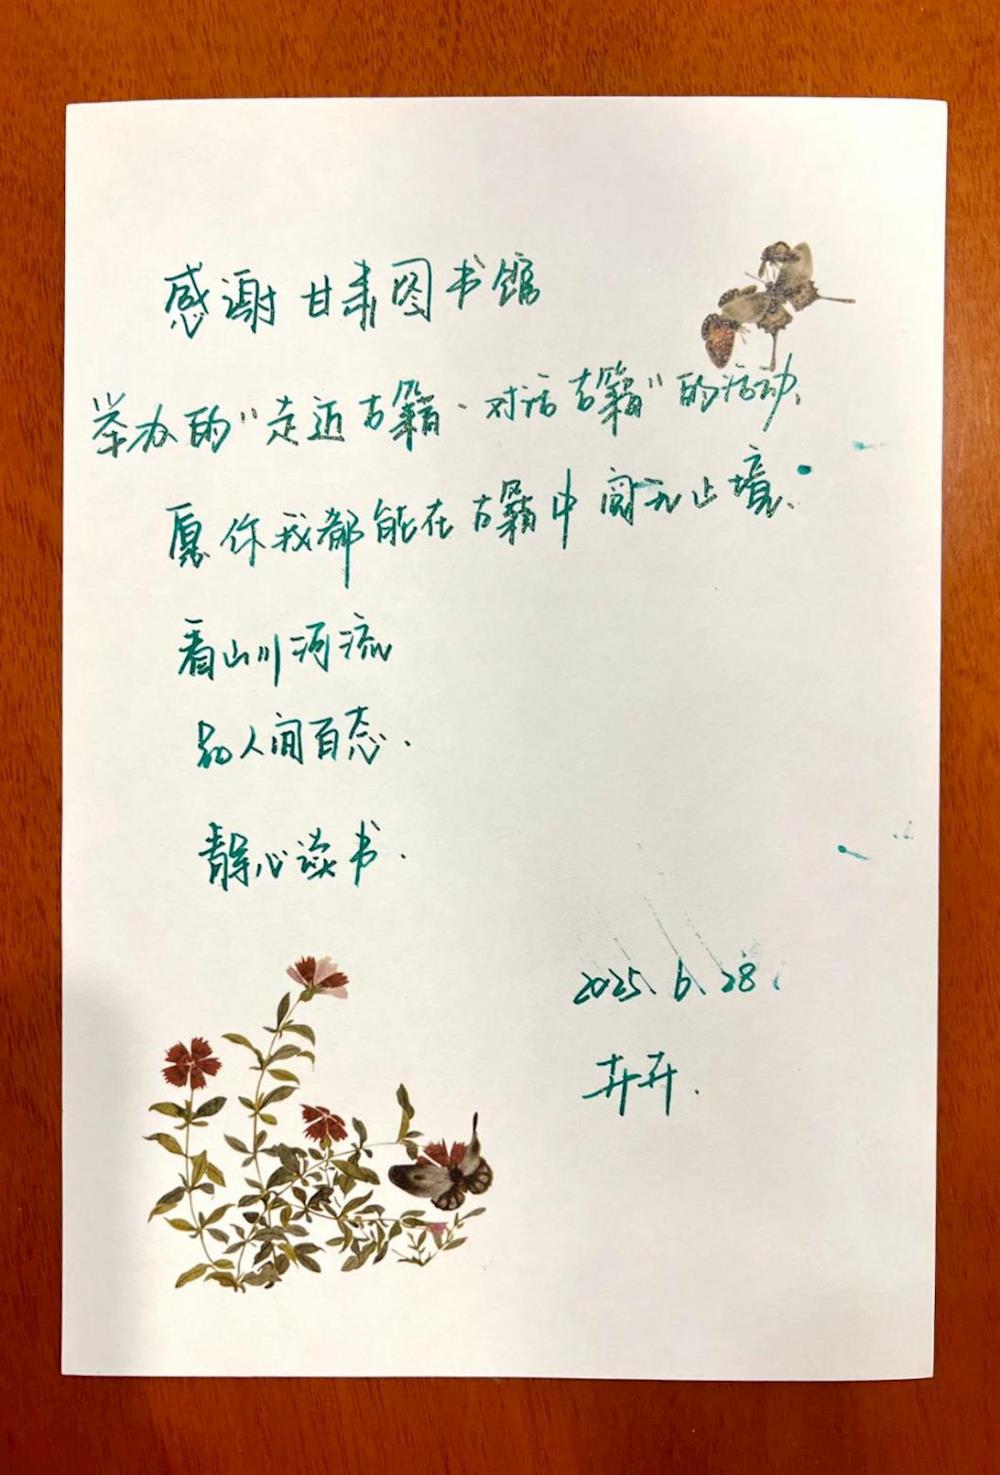 感谢甘肃图书馆
举办的“走近古籍·对话古籍”的活动、
愿你我都能在古籍中阅无止境.
看山川河流
品人间百态.
静心读书.
2025.6.28
卉卉.